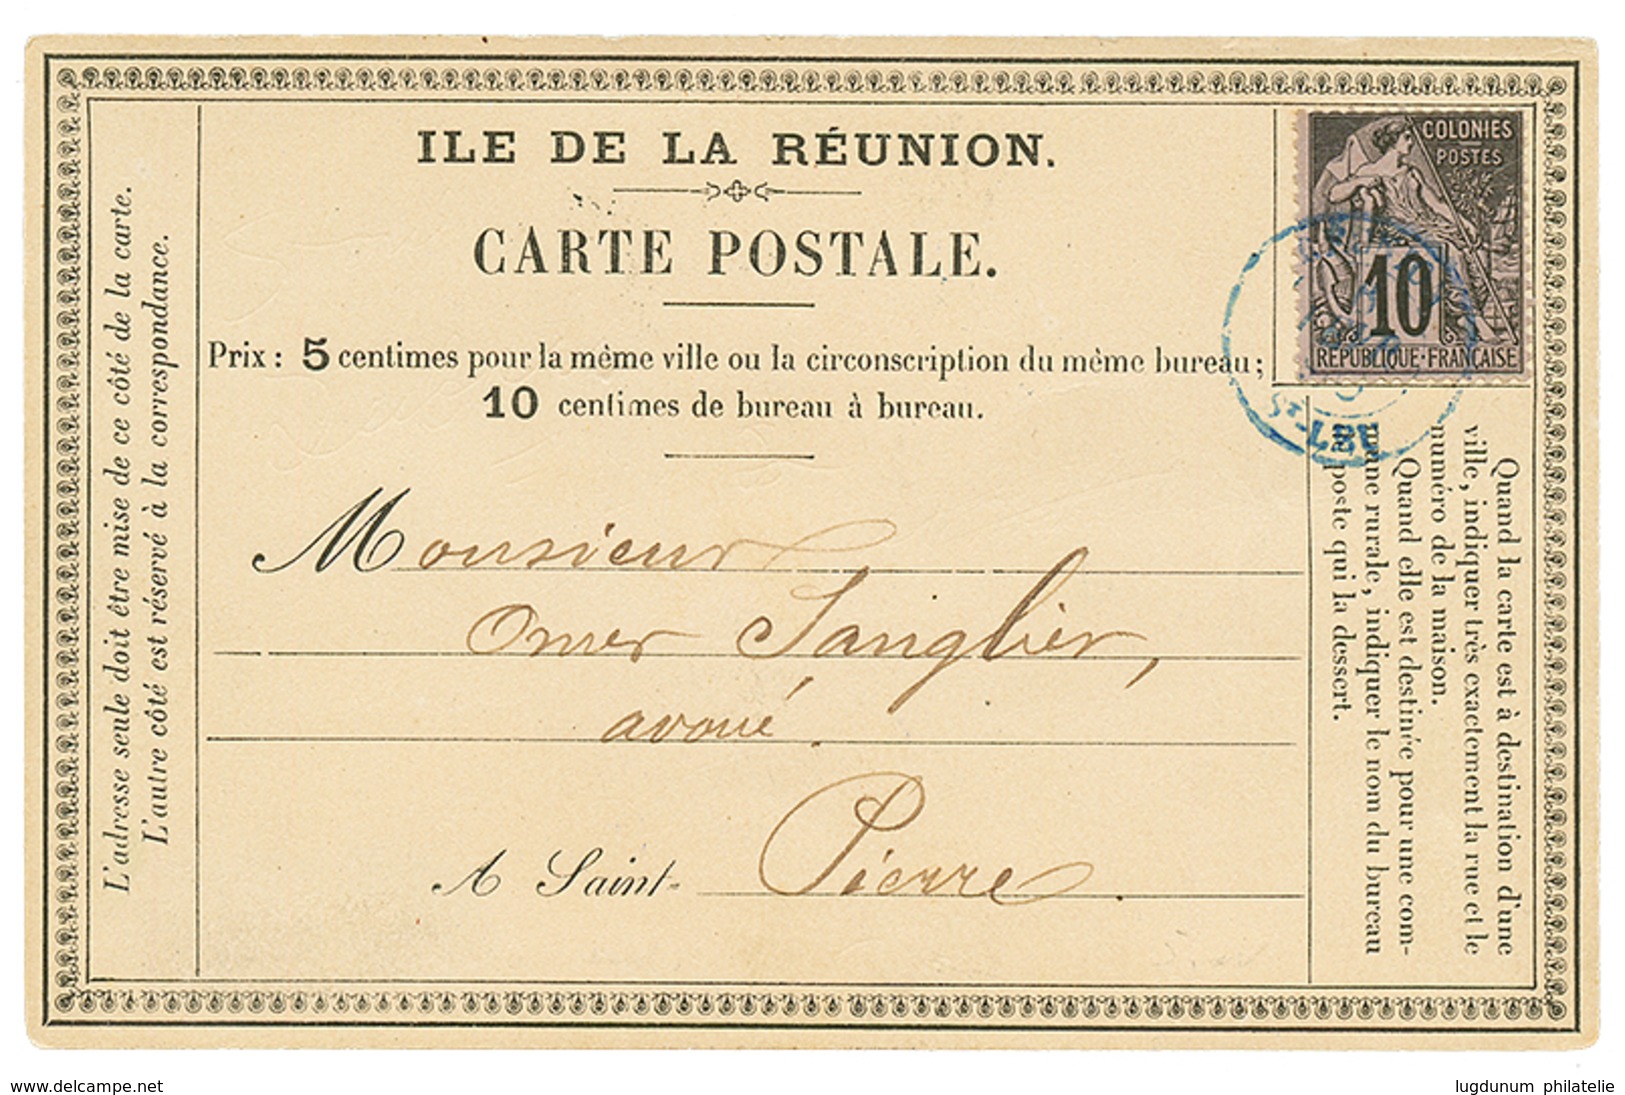 ILE DE LA RÉUNION.
CARTE POSTALE.
Prix : 5 centimes pour la même ville ou la circonscription du même bureau ;
10 centimes de bureau à bureau.
Monsieur
Omer Sanglier,
avoué
A Saint-Pierre.
L'adresse seule doit être mise de ce côté de la carte.
L'autre côté est réservé à la correspondance.
COLONIES
POSTES
10
RÉPUBLIQUE·FRANÇAISE
ST-LEU
Quand la carte est à destination d'une
ville, indiquer très exactement la rue et le
numéro de la maison.
Quand elle est destinée pour une com-
mune rurale, indiquer le nom du bureau
poste qui la dessert.
www.delcampe.net
lugdunum philatelie